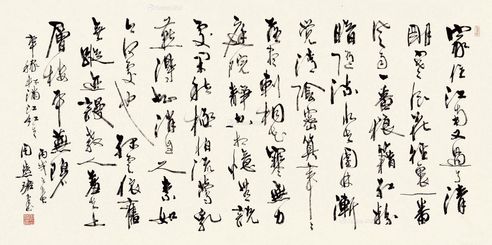 家住江南又過了清
明寒食花徑裏一番
風雨一番狼籍紅粉
暗隨流水去園林漸
覺清陰密算年年
落盡刺桐花寒無力
庭院靜空相憶無説
處閑愁極怕流鶯乳
燕得知消息尺素如
今何處也彩雲依舊
無蹤迹謾教人羞去上
層樓平蕪碧
辛稼軒滿江紅
丙戌
周慧珺書